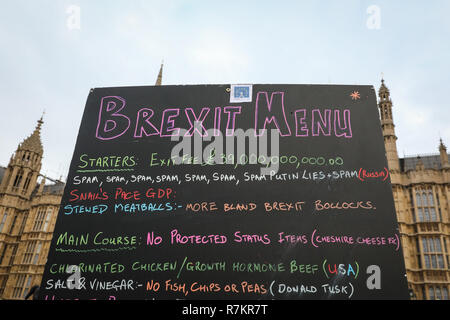 BREXIT MENU *
STARTERS: EXIT FEE £ 39,000,000,000.00
SPAM, SPAM, SPAM, SPAM, SPAM, SPAM, SPAM PUTIN LIES + SPAM (RUSSIA)
SNAIL'S PACE GDP:
STEWED MEATBALLS:- MORE BLAND BREXIT BOLLOCKS.
MAIN COURSE: NO PROTECTED STATUS ITEMS (CHESHIRE CHEESE
CHLORINATED CHICKEN / GROWTH HORMONE BEEF (USA)
SALT & VINEGAR:- NO FISH, CHIPS OR PEAS (DONALD TUSK)
alamy